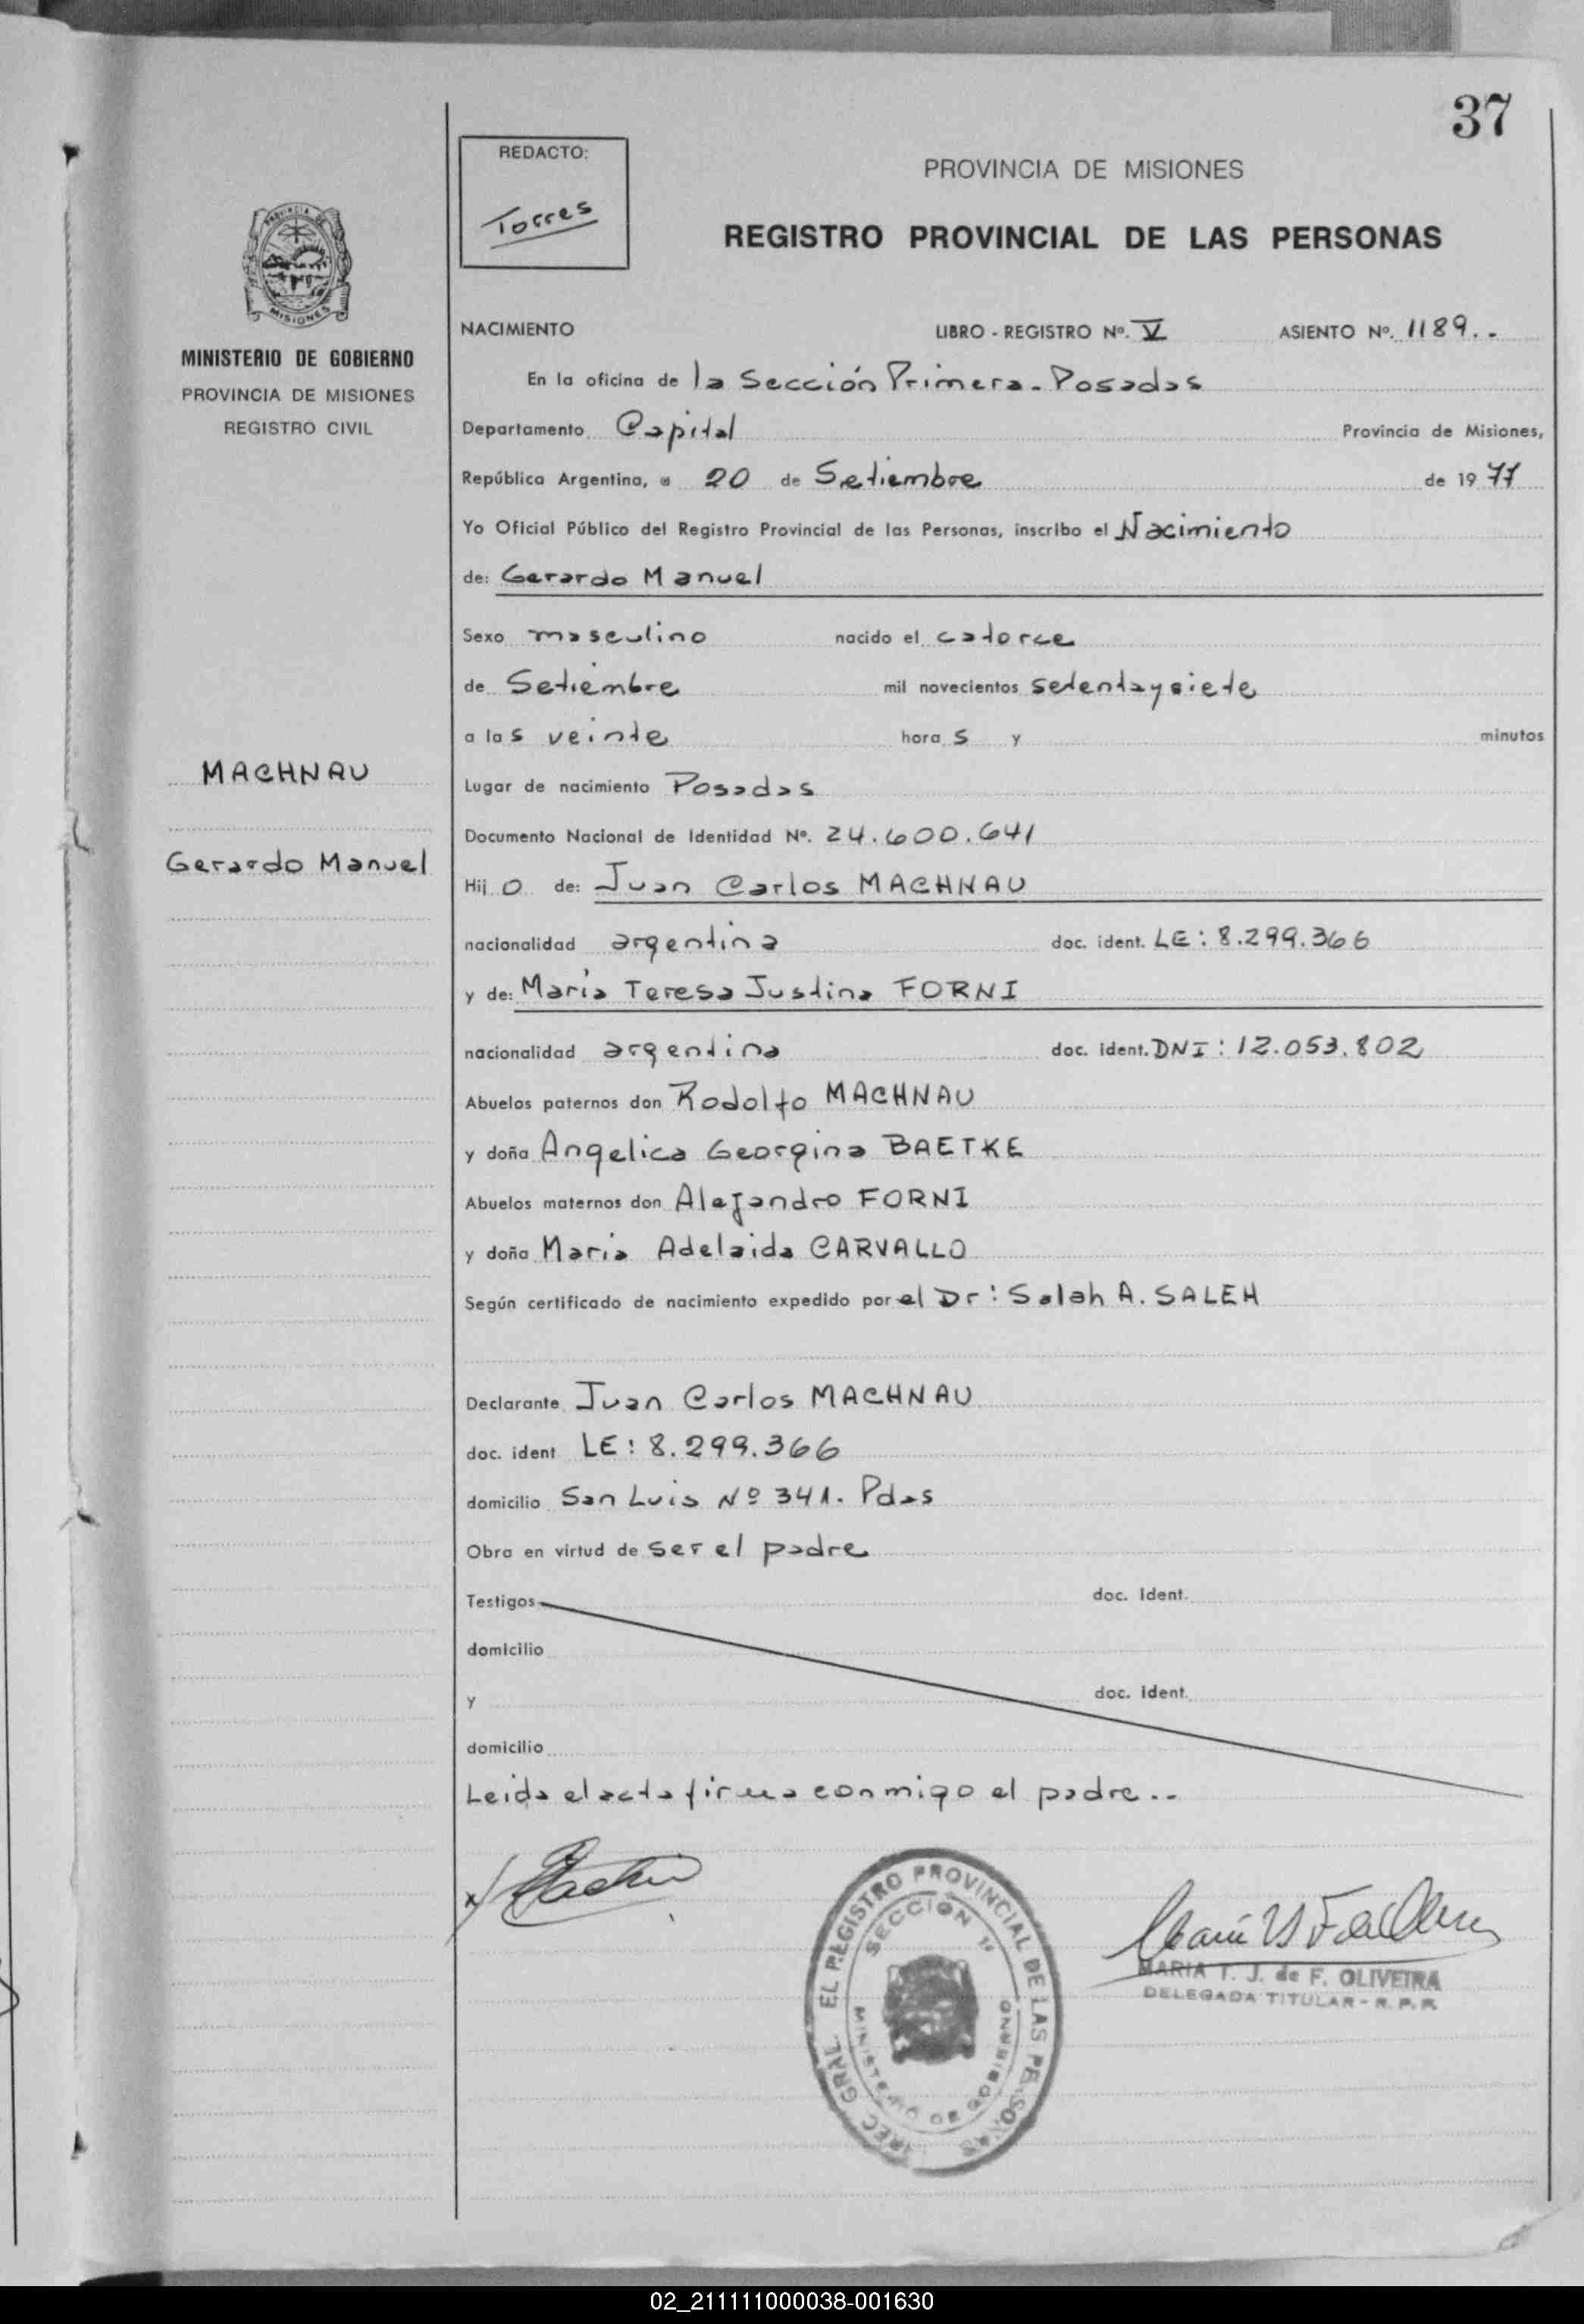 37
REDACTO:
Torres
PROVINCIA DE MISIONES
REGISTRO PROVINCIAL DE LAS PERSONAS
PROVINCIA DE
MISIONES
MINISTERIO DE GOBIERNO
PROVINCIA DE MISIONES
REGISTRO CIVIL
MACHNAU
Gerardo Manuel
NACIMIENTO LIBRO - REGISTRO Nº. V ASIENTO Nº. 1189..
En la oficina de la Sección Primera - Posadas
Departamento Capital Provincia de Misiones,
República Argentina, a 20 de Setiembre de 1977
Yo Oficial Público del Registro Provincial de las Personas, inscribo el Nacimiento
de: Gerardo Manuel
Sexo masculino nacido el catorce
de Setiembre mil novecientos setentaysiete
a las veinte horas y minutos
Lugar de nacimiento Posadas
Documento Nacional de Identidad Nº. 24.600.641
Hijo de: Juan Carlos MACHNAU
nacionalidad argentina doc. ident. LE: 8.299.366
y de: María Teresa Justina FORNI
nacionalidad argentina doc. ident. DNI: 12.053.802
Abuelos paternos don Rodolfo MACHNAU
y doña Angelica Georgina BAETKE
Abuelos maternos don Alejandro FORNI
y doña Maria Adelaida CARVALLO
Según certificado de nacimiento expedido por el Dr: Salah A. SALEH
Declarante Juan Carlos MACHNAU
doc. ident LE: 8.299.366
domicilio San Luis Nº 341. Pdas
Obra en virtud de ser el padre
Testigos doc. Ident.
domicilio
y doc. ident.
domicilio
Leida el acta firma conmigo el padre..
GRAL. EL REGISTRO PROVINCIAL DE LAS PERSONAS
SECCION 1ª
MINISTERIO DE GOBIERNO
MARIA T. J. de F. OLIVEIRA
DELEGADA TITULAR - R. P. P.
02_211111000038-001630